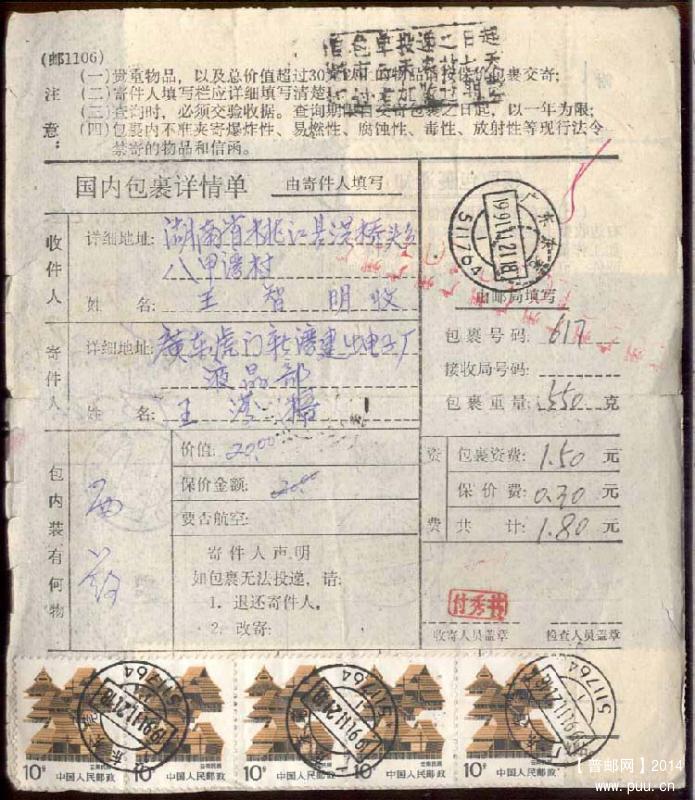 (邮1106)
注意：
(一)贵重物品，以及总价值超过30元以上的物品请按保价包裹交寄；
(二)寄件人填写栏应详细填写清楚；
(三)查询时，必须交验收据。查询期限自交寄包裹之日起，以一年为限；
(四)包裹内不准夹寄爆炸性、易燃性、腐蚀性、毒性、放射性等现行法令
禁寄的物品和信函。
国内包裹详情单 由寄件人填写
收件人
详细地址: 湖南省桃江县洪桥头乡
八甲湾村
姓 名: 王智明收
寄件人
详细地址: 广东虎门
液晶部
姓 名: 王
包内装有何物
价值: 20.00
保价金额: 20.00
要否航空:
寄件人声明
如包裹无法投递，请:
1. 退还寄件人，
2. 改寄:
广东东莞
1991.11.21.18
511764
由邮局填写
包裹号码: 617
接收局号码:
包裹重量: 550 克
资费
包裹资费: 1.50 元
保价费: 0.30 元
共计: 1.80 元
付秀井
收寄人员盖章 检查人员盖章
511764
511764
511764
10分 云南民居 中国人民邮政
10分 云南民居 中国人民邮政
10分 云南民居 中国人民邮政
10分 云南民居 中国人民邮政
10分 云南民居 中国人民邮政
【普邮网】2014
www.puu.cn